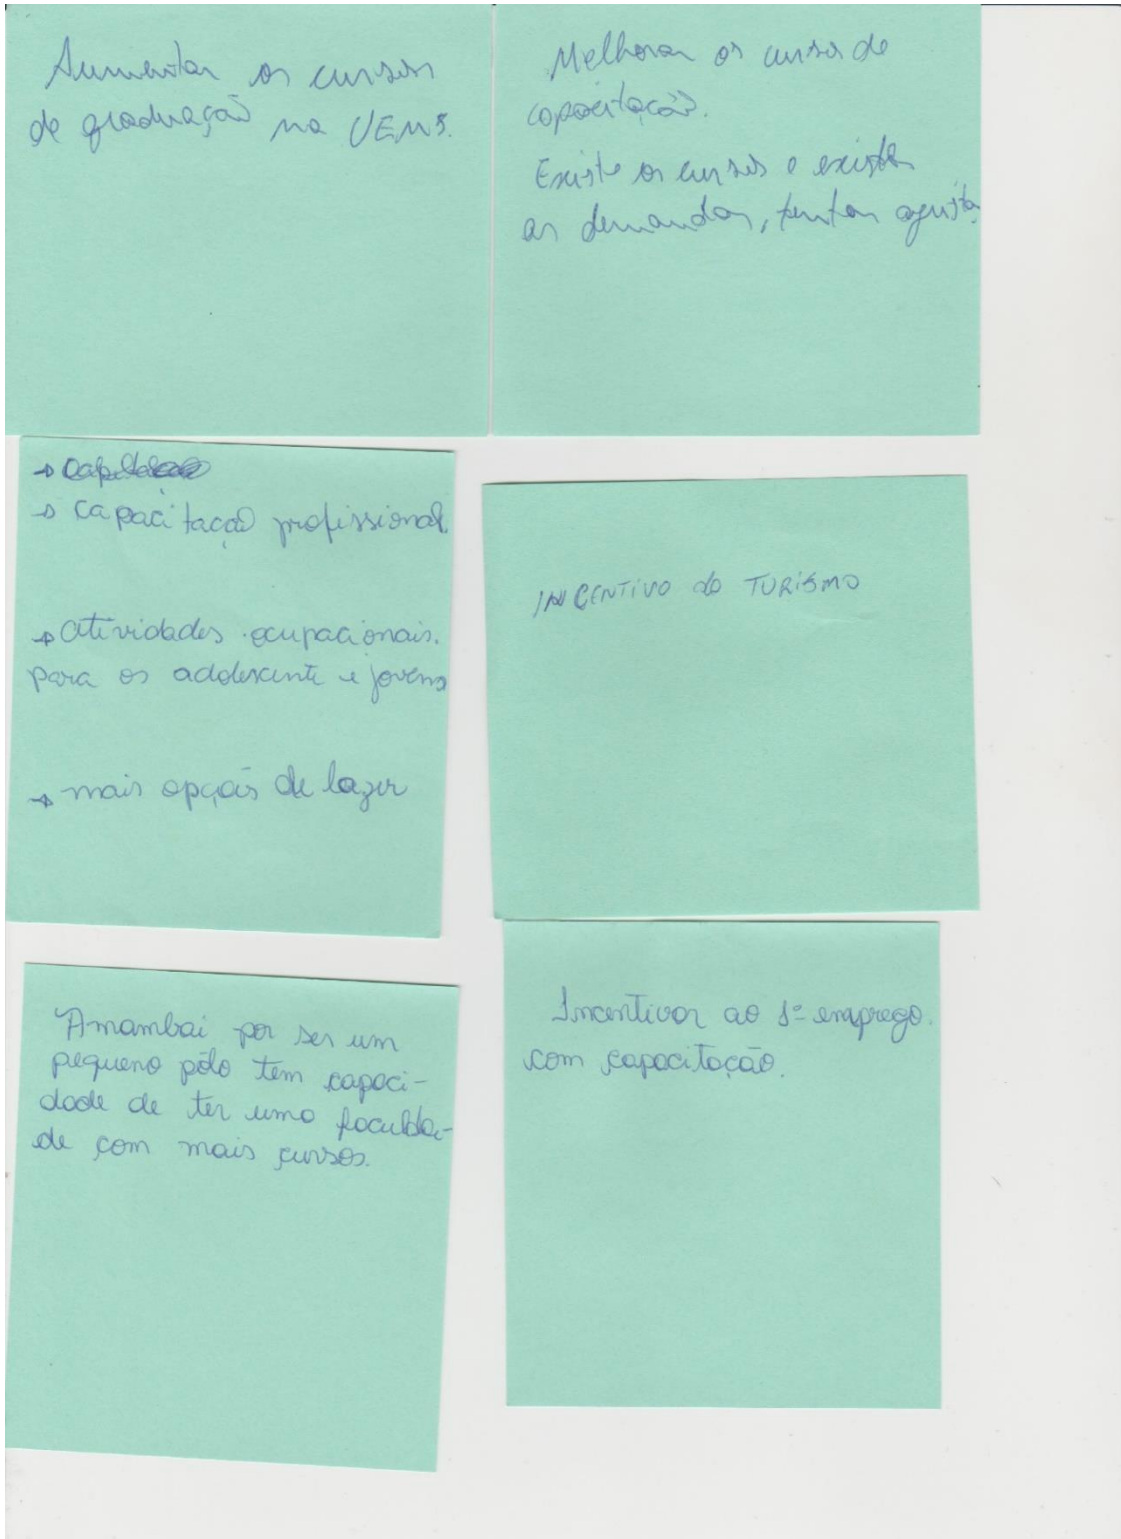 Aumentar os cursos
de graduação na UEMS.
Melhorar os cursos de
capacitação.
Existe os cursos e existem
as demandas, tentar ajustar
→ capacitação profissional.
→ atividades ocupacionais.
para os adolescente e jovens
→ mais opções de lazer
INCENTIVO do TURISMO
Amambai por ser um
pequeno pólo tem capaci-
dade de ter uma faculda-
de com mais cursos.
Incentivar ao 1º emprego.
com capacitação.